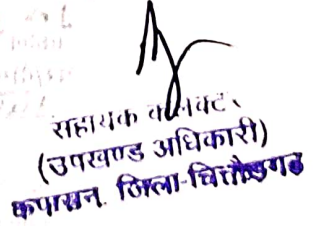 सहायक कलक्टर
(उपखण्ड अधिकारी)
कपासन, जिला-चित्तौडगढ